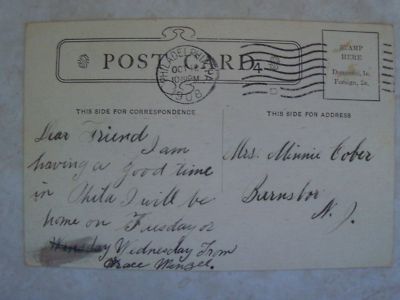 POST CARD
PHILADELPHIA, PA.
OCT
1908
4
STAMP
HERE
Domestic, 1c.
Foreign, 2c.
THIS SIDE FOR CORRESPONDENCE
THIS SIDE FOR ADDRESS
Dear Friend
I am
having a good time
in Phila I will be
home on Tuesday or
Wednesday From
Grace
Mrs. Minnie Cober
N. J.